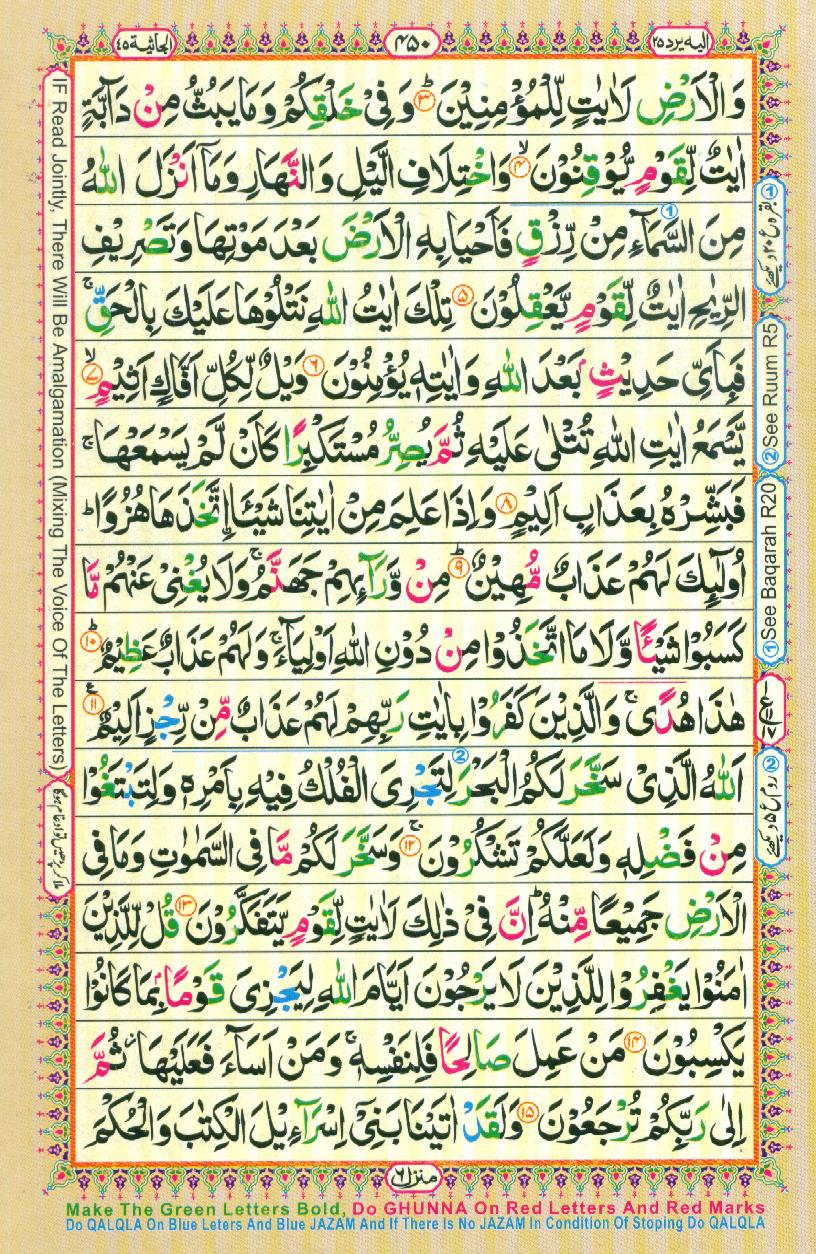 الیه یرد ۲۵
۴۵۰
الجاثیة ۴۵
وَالْاَرْضِ لَاٰیٰتٍ لِّلْمُؤْمِنِیْنَ ؕ﴿۳﴾ وَفِیْ خَلْقِكُمْ وَمَا یَبُثُّ مِنْ دَآبَّةٍ
اٰیٰتٌ لِّقَوْمٍ یُّوْقِنُوْنَ ۙ﴿۴﴾ وَاخْتِلَافِ الَّیْلِ وَالنَّهَارِ وَمَاۤ اَنْزَلَ اللّٰهُ
مِنَ السَّمَآءِ مِنْ رِّزْقٍ فَاَحْیَا بِهِ الْاَرْضَ بَعْدَ مَوْتِهَا وَتَصْرِیْفِ
الرِّیٰحِ اٰیٰتٌ لِّقَوْمٍ یَّعْقِلُوْنَ ﴿۵﴾ تِلْكَ اٰیٰتُ اللّٰهِ نَتْلُوْهَا عَلَیْكَ بِالْحَقِّ ۚ
فَبِاَیِّ حَدِیْثٍۭ بَعْدَ اللّٰهِ وَاٰیٰتِهٖ یُؤْمِنُوْنَ ﴿۶﴾ وَیْلٌ لِّكُلِّ اَفَّاكٍ اَثِیْمٍ ۙ﴿۷﴾
یَّسْمَعُ اٰیٰتِ اللّٰهِ تُتْلٰی عَلَیْهِ ثُمَّ یُصِرُّ مُسْتَكْبِرًا كَاَنْ لَّمْ یَسْمَعْهَا ۚ
فَبَشِّرْهُ بِعَذَابٍ اَلِیْمٍ ﴿۸﴾ وَاِذَا عَلِمَ مِنْ اٰیٰتِنَا شَیْـَٔا ِ۟اتَّخَذَهَا هُزُوًا ؕ
اُولٰٓئِكَ لَهُمْ عَذَابٌ مُّهِیْنٌ ؕ﴿۹﴾ مِنْ وَّرَآئِهِمْ جَهَنَّمُ ۚ وَلَا یُغْنِیْ عَنْهُمْ مَّا
كَسَبُوْا شَیْـًٔا وَّلَا مَا اتَّخَذُوْا مِنْ دُوْنِ اللّٰهِ اَوْلِیَآءَ ۚ وَلَهُمْ عَذَابٌ عَظِیْمٌ ؕ﴿۱۰﴾
هٰذَا هُدًی ۚ وَالَّذِیْنَ كَفَرُوْا بِاٰیٰتِ رَبِّهِمْ لَهُمْ عَذَابٌ مِّنْ رِّجْزٍ اَلِیْمٌ ﴿۱۱﴾
اَللّٰهُ الَّذِیْ سَخَّرَ لَكُمُ الْبَحْرَ لِتَجْرِیَ الْفُلْكُ فِیْهِ بِاَمْرِهٖ وَلِتَبْتَغُوْا
مِنْ فَضْلِهٖ وَلَعَلَّكُمْ تَشْكُرُوْنَ ۚ﴿۱۲﴾ وَسَخَّرَ لَكُمْ مَّا فِی السَّمٰوٰتِ وَمَا فِی
الْاَرْضِ جَمِیْعًا مِّنْهُ ؕ اِنَّ فِیْ ذٰلِكَ لَاٰیٰتٍ لِّقَوْمٍ یَّتَفَكَّرُوْنَ ﴿۱۳﴾ قُلْ لِّلَّذِیْنَ
اٰمَنُوْا یَغْفِرُوْا لِلَّذِیْنَ لَا یَرْجُوْنَ اَیَّامَ اللّٰهِ لِیَجْزِیَ قَوْمًۢا بِمَا كَانُوْا
یَكْسِبُوْنَ ﴿۱۴﴾ مَنْ عَمِلَ صَالِحًا فَلِنَفْسِهٖ ۚ وَمَنْ اَسَآءَ فَعَلَیْهَا ؗ ثُمَّ
اِلٰی رَبِّكُمْ تُرْجَعُوْنَ ﴿۱۵﴾ وَلَقَدْ اٰتَیْنَا بَنِیْۤ اِسْرَآءِیْلَ الْكِتٰبَ وَالْحُكْمَ
① بقرہ ع ۲۰ دیکھئے
② See Ruum R5
① See Baqarah R20
② روم ع ۵ دیکھئے
IF Read Jointly, There Will Be Amalgamation (Mixing The Voice Of The Letters)
منزل ۶
Make The Green Letters Bold, Do GHUNNA On Red Letters And Red Marks
Do QALQLA On Blue Leters And Blue JAZAM And If There Is No JAZAM In Condition Of Stoping Do QALQLA